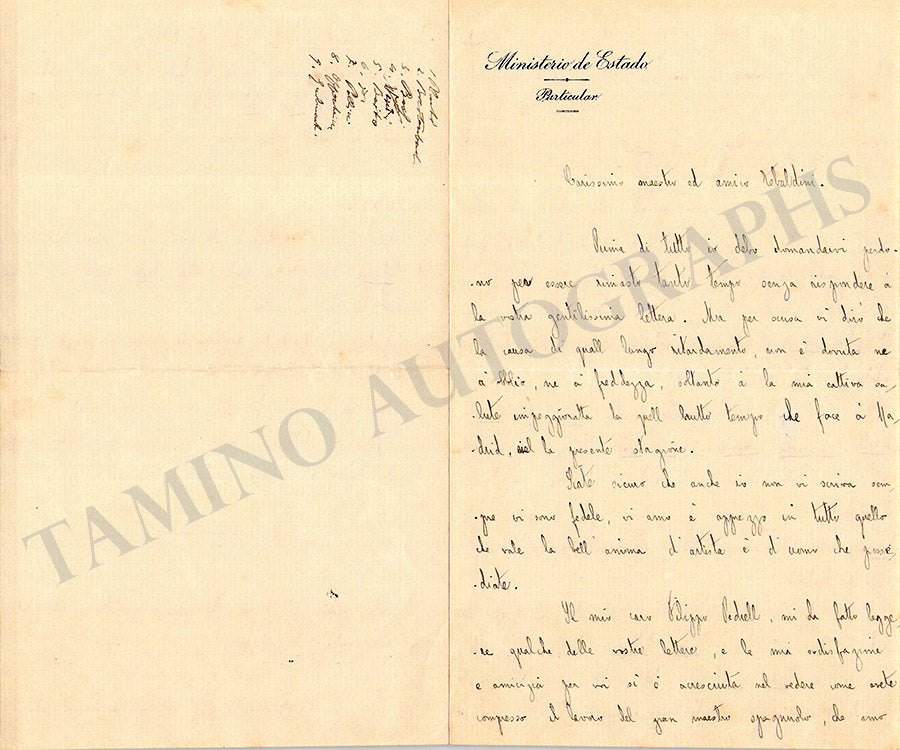 Ministerio de Estado
Particular
Carissimo maestro ed amico Tebaldini.
Prima di tutto io debo domandarvi perdo-
-no per essere rimasto tanto tempo senza rispondere á
la vostra gentilissima lettera. Ma per scusa vi diró che
la causa di quall lungo ritardamento, non é dovuta ne
á oblio, ne á freddezza, soltanto á la mia cattiva sa-
-lute impeggiorata la quell brutto tempo che face á Ma-
-drid, nel la presente stagione.
State sicuro che anche io non vi scriva sem-
-pre vi sono fedele, vi amo é apprezzo in tutto quello
che vale la bell'anima d'artista é d'uomo che possé-
-diate.
Il mio caro Filippo Pedrell, mi ha fatto legge-
-re qualche delle vostre lettere, e la mia sodisfazione
e amicizia per voi si é acresciuta nel vedere come avete
compresso il lavoro del gran maestro spagnuolo, che amo
1
2.
3. Bach
4. Verdi
5.
6.
7.
8.
9.
TAMINO AUTOGRAPHS